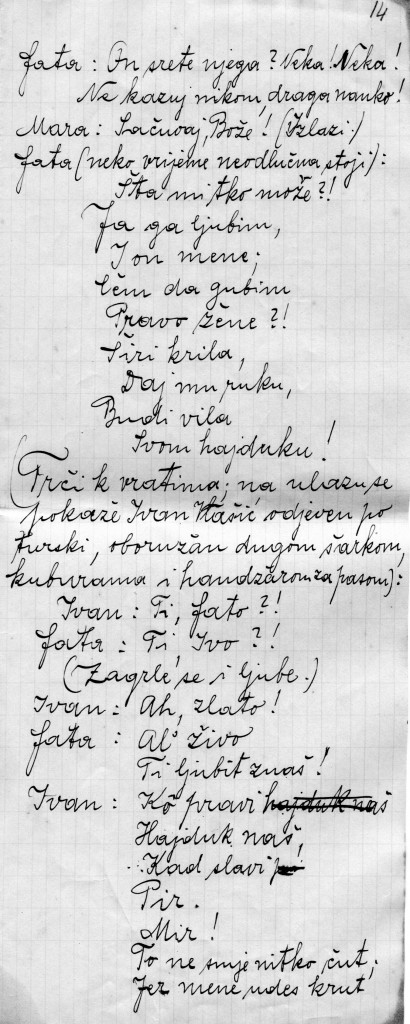 14
Fata: On srete njega? Neka! Neka!
Ne kazuj nikom, draga nanko!
Mara: Sačuvaj, Bože! (Izlazi.)
Fata (neko vrijeme neodlučna stoji):
Šta mi tko može?!
Ja ga ljubim,
I on mene;
čem da gubim
Pravo žene?!
Širi krila,
Daj mu ruku,
Budi vila
Svom hajduku!
(Trči k vratima; na ulazu se
pokaže Ivan Vlašić odjeven po
turski, oboružan dugom šarkom,
kuburama i handžarom za pasom):
Ivan: Ti, Fato?!
Fata: Ti, Ivo?!
(Zagrle se i ljube.)
Ivan: Ah, zlato!
Fata: Al' živo
Ti ljubit znaš!
Ivan: Kô pravi hajduk naš
Hajduk naš,
Kad slavi
Pir.
Mir!
To ne smje nitko čut;
Jer mene udes krut